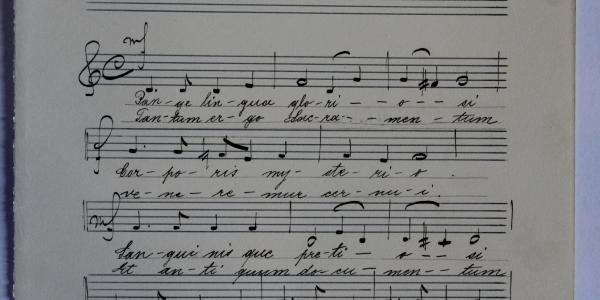 mf
Pan-ge lin-gua glo-ri - - o - - si
Tan-tum er-go Sac-ra - - men - tum
Cor-po-ris my-ste-ri-o.
ve-ne-re-mur cer-nu-i.
mf
San-gui nis que pre-ti - o - - si
Et an-ti quum do-cu - men - - tum